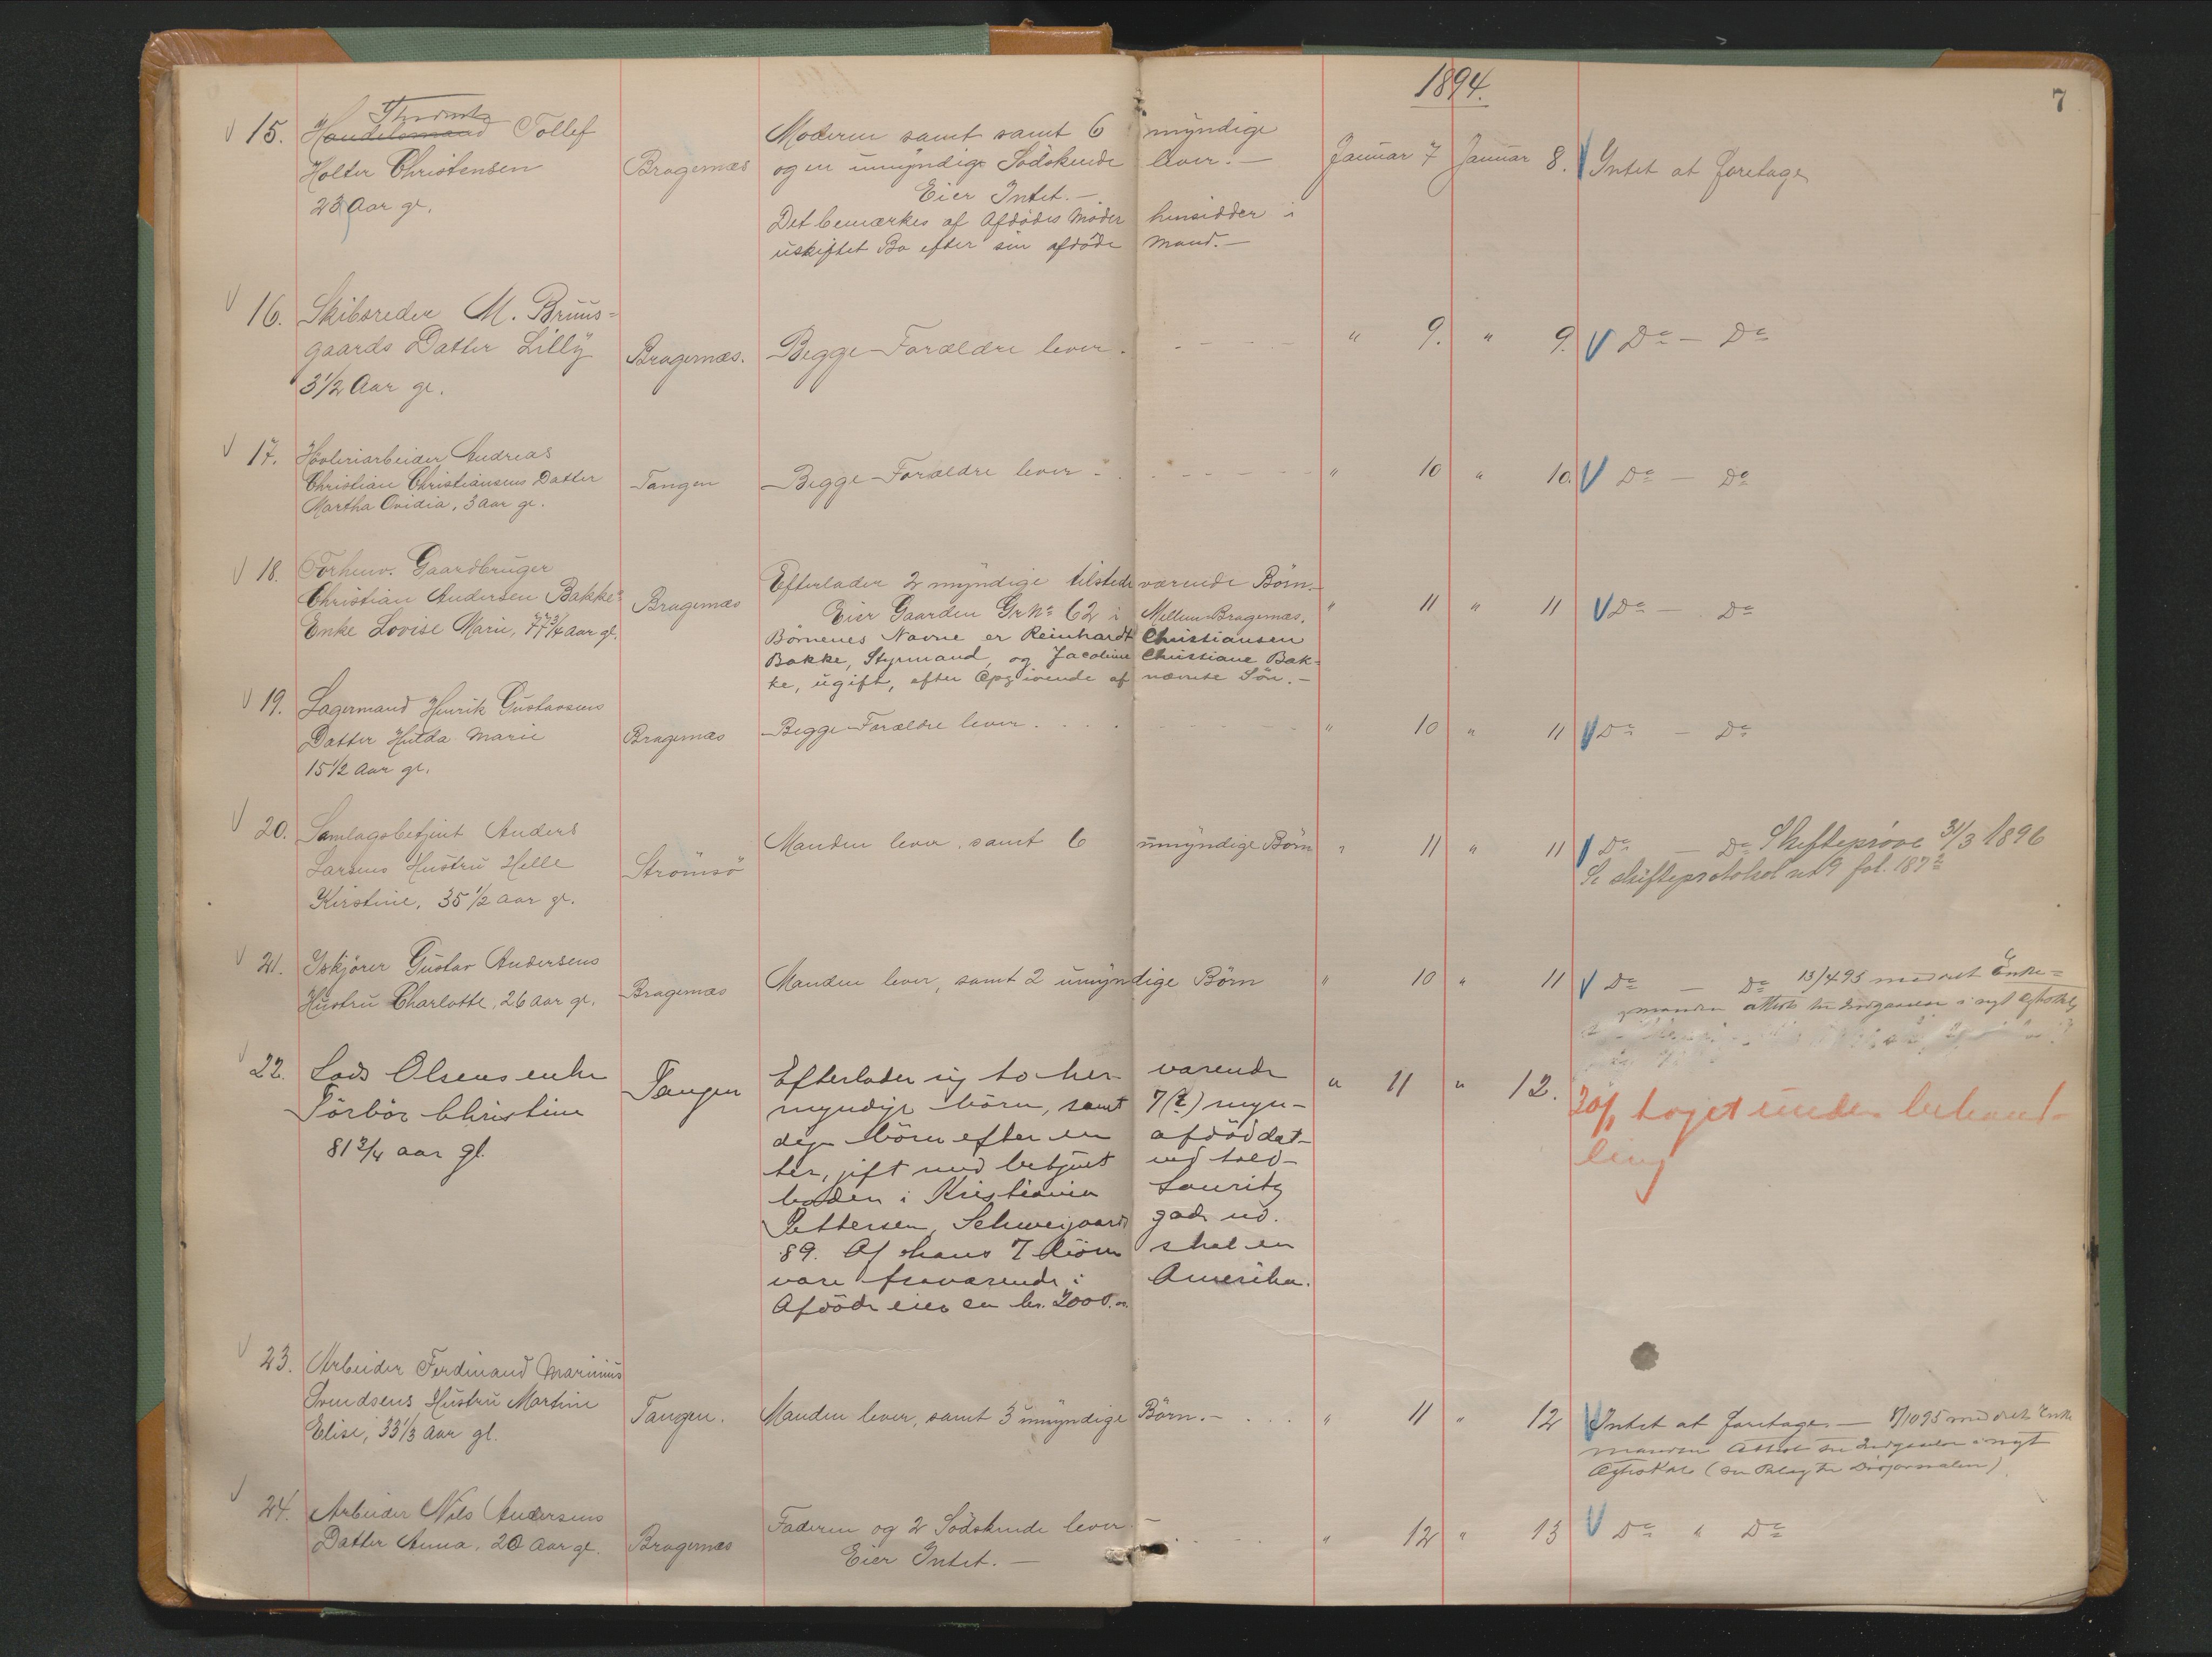 1894.
7
15. Handelsmand Tollef
Holter Christensen
23 Aar gl.
Bragernæs
Moderen samt samt 6 myndige
og en umyndige Södskende lever. —
Eier Intet. —
Det bemærkes af Afdödes Moder hensidder i
uskiftet Bo efter sin afdöde Mand. —
Januar 7 Januar 8. Intet at foretage
16. Skibsreder M. Bruus-
gaards Datter Lilly
3 1/2 Aar gl.
Bragernæs.
Begge Forældre lever.
" 9. " 9. Do — Do
17. Høvleriarbeider Andreas
Christian Christiansens Datter
Martha Ovidia, 3 Aar gl.
Tangen
Begge Forældre lever
" 10 " 10. Do — Do
18. Forhenv. Gaardbruger
Christian Andersen Bakkes
Enke Lovise Marie, 77 3/4 Aar gl.
Bragernæs
Efterlader 2 myndige tilstedeværende Börn. —
Eier Gaarden Gr No 62 i Mellem Bragernæs.
Börnenes Navne er Reinhardt Christiansen
Bakke, Styrmand, og Jacobine Christiane Bak-
ke, ugift, efter Opgivende af nævnte Sön. —
" 11 " 11 Do — Do
19. Lagermand Henrik Gustavsens
Datter Hulda Marie
15 1/2 Aar gl.
Bragernæs
Begge Forældre lever.
" 10 " 11 Do — Do
20. Samlagsbetjent Anders
Larsens Hustru Helle
Kirstine, 35 1/2 Aar gl.
Strömsö
Manden lever, samt 6 umyndige Börn
" 11 " 11 Do — Do Skifteprøve 31/3 1896
Se skifteprotokol no 9 fol. 187
21. Iskjører Gustav Andersens
Hustru Charlotte, 26 Aar gl.
Bragernæs
Manden lever, samt 2 umyndige Börn
" 10 " 11 Do — Do 13/4 95 meddelt Enke-
manden attest til Indgaaelse i nyt Ægteskab
22. Lods Olsens enke
Törbör Christine
81 3/4 aar gl.
Tangen
Efterlader sig to her værende
myndige börn, samt 7 (?) myn-
dige börn efter en afdöd dat-
ter, gift med betjent ved told-
boden i Kristiania Lauritz
Pettersen, Schweigaards gade no.
89. Af hans 7 börn skal en
være fraværende i Amerika.
Afdöde eier ca kr. 2000.
" 11 " 12. taget under behand-
ling
23. Arbeider Ferdinand Marinius
Svendsens Hustru Martine
Elise, 33 1/3 Aar gl.
Tangen.
Manden lever, samt 3 umyndige Börn. —
" 11 " 12 Intet at foretage. — 8/10 95 meddelt Enke
manden Attest til Indgaaelse i nyt
Ægteskab (se Bilag til Dödsjournalen)
24. Arbeider Nils Andersens
Datter Anna, 20 Aar gl.
Bragernæs
Faderen og 2 Södskende lever. —
Eier Intet. —
" 12 " 13 Do " Do